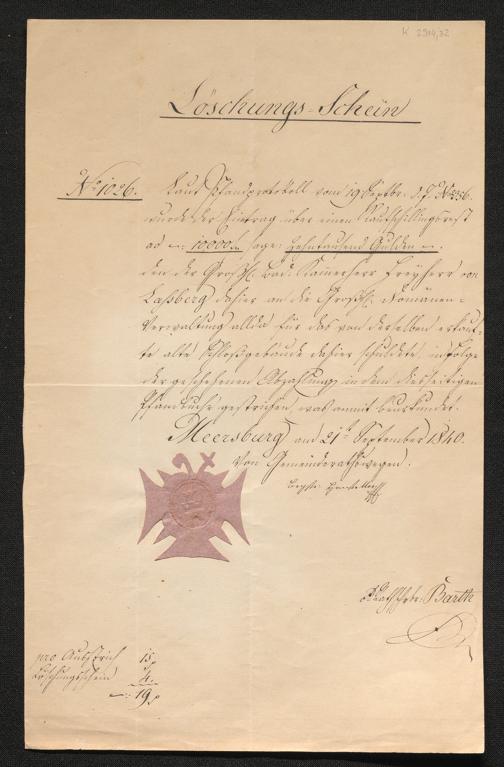 K 2914,32
Löschungs-Schein
No. 1026. Laut Pfandprotokoll vom 19 Septbr. d. J. No 336.
wurde der Eintrag über einen Kaufschillingsrest
ad 10000 f. sage: Zehntausend Gulden
den der Großh. Bad. Kammerherr Freyherr von
Laßberg dahier an die Großh. Domänen-
Verwaltung allda für das von derselben erkauf-
te alte Schloßgebäude dahier schuldete, infolge
der geschehenen Abzahlung in dem diesseitigen
Pfandbuche gestrichen, was anmit beurkundet.
Meersburg am 21t September 1840.
Von Gemeinderathswegen.
Rathschr. Barth
pro Ausstrich 15
Löschungsschein 4
19